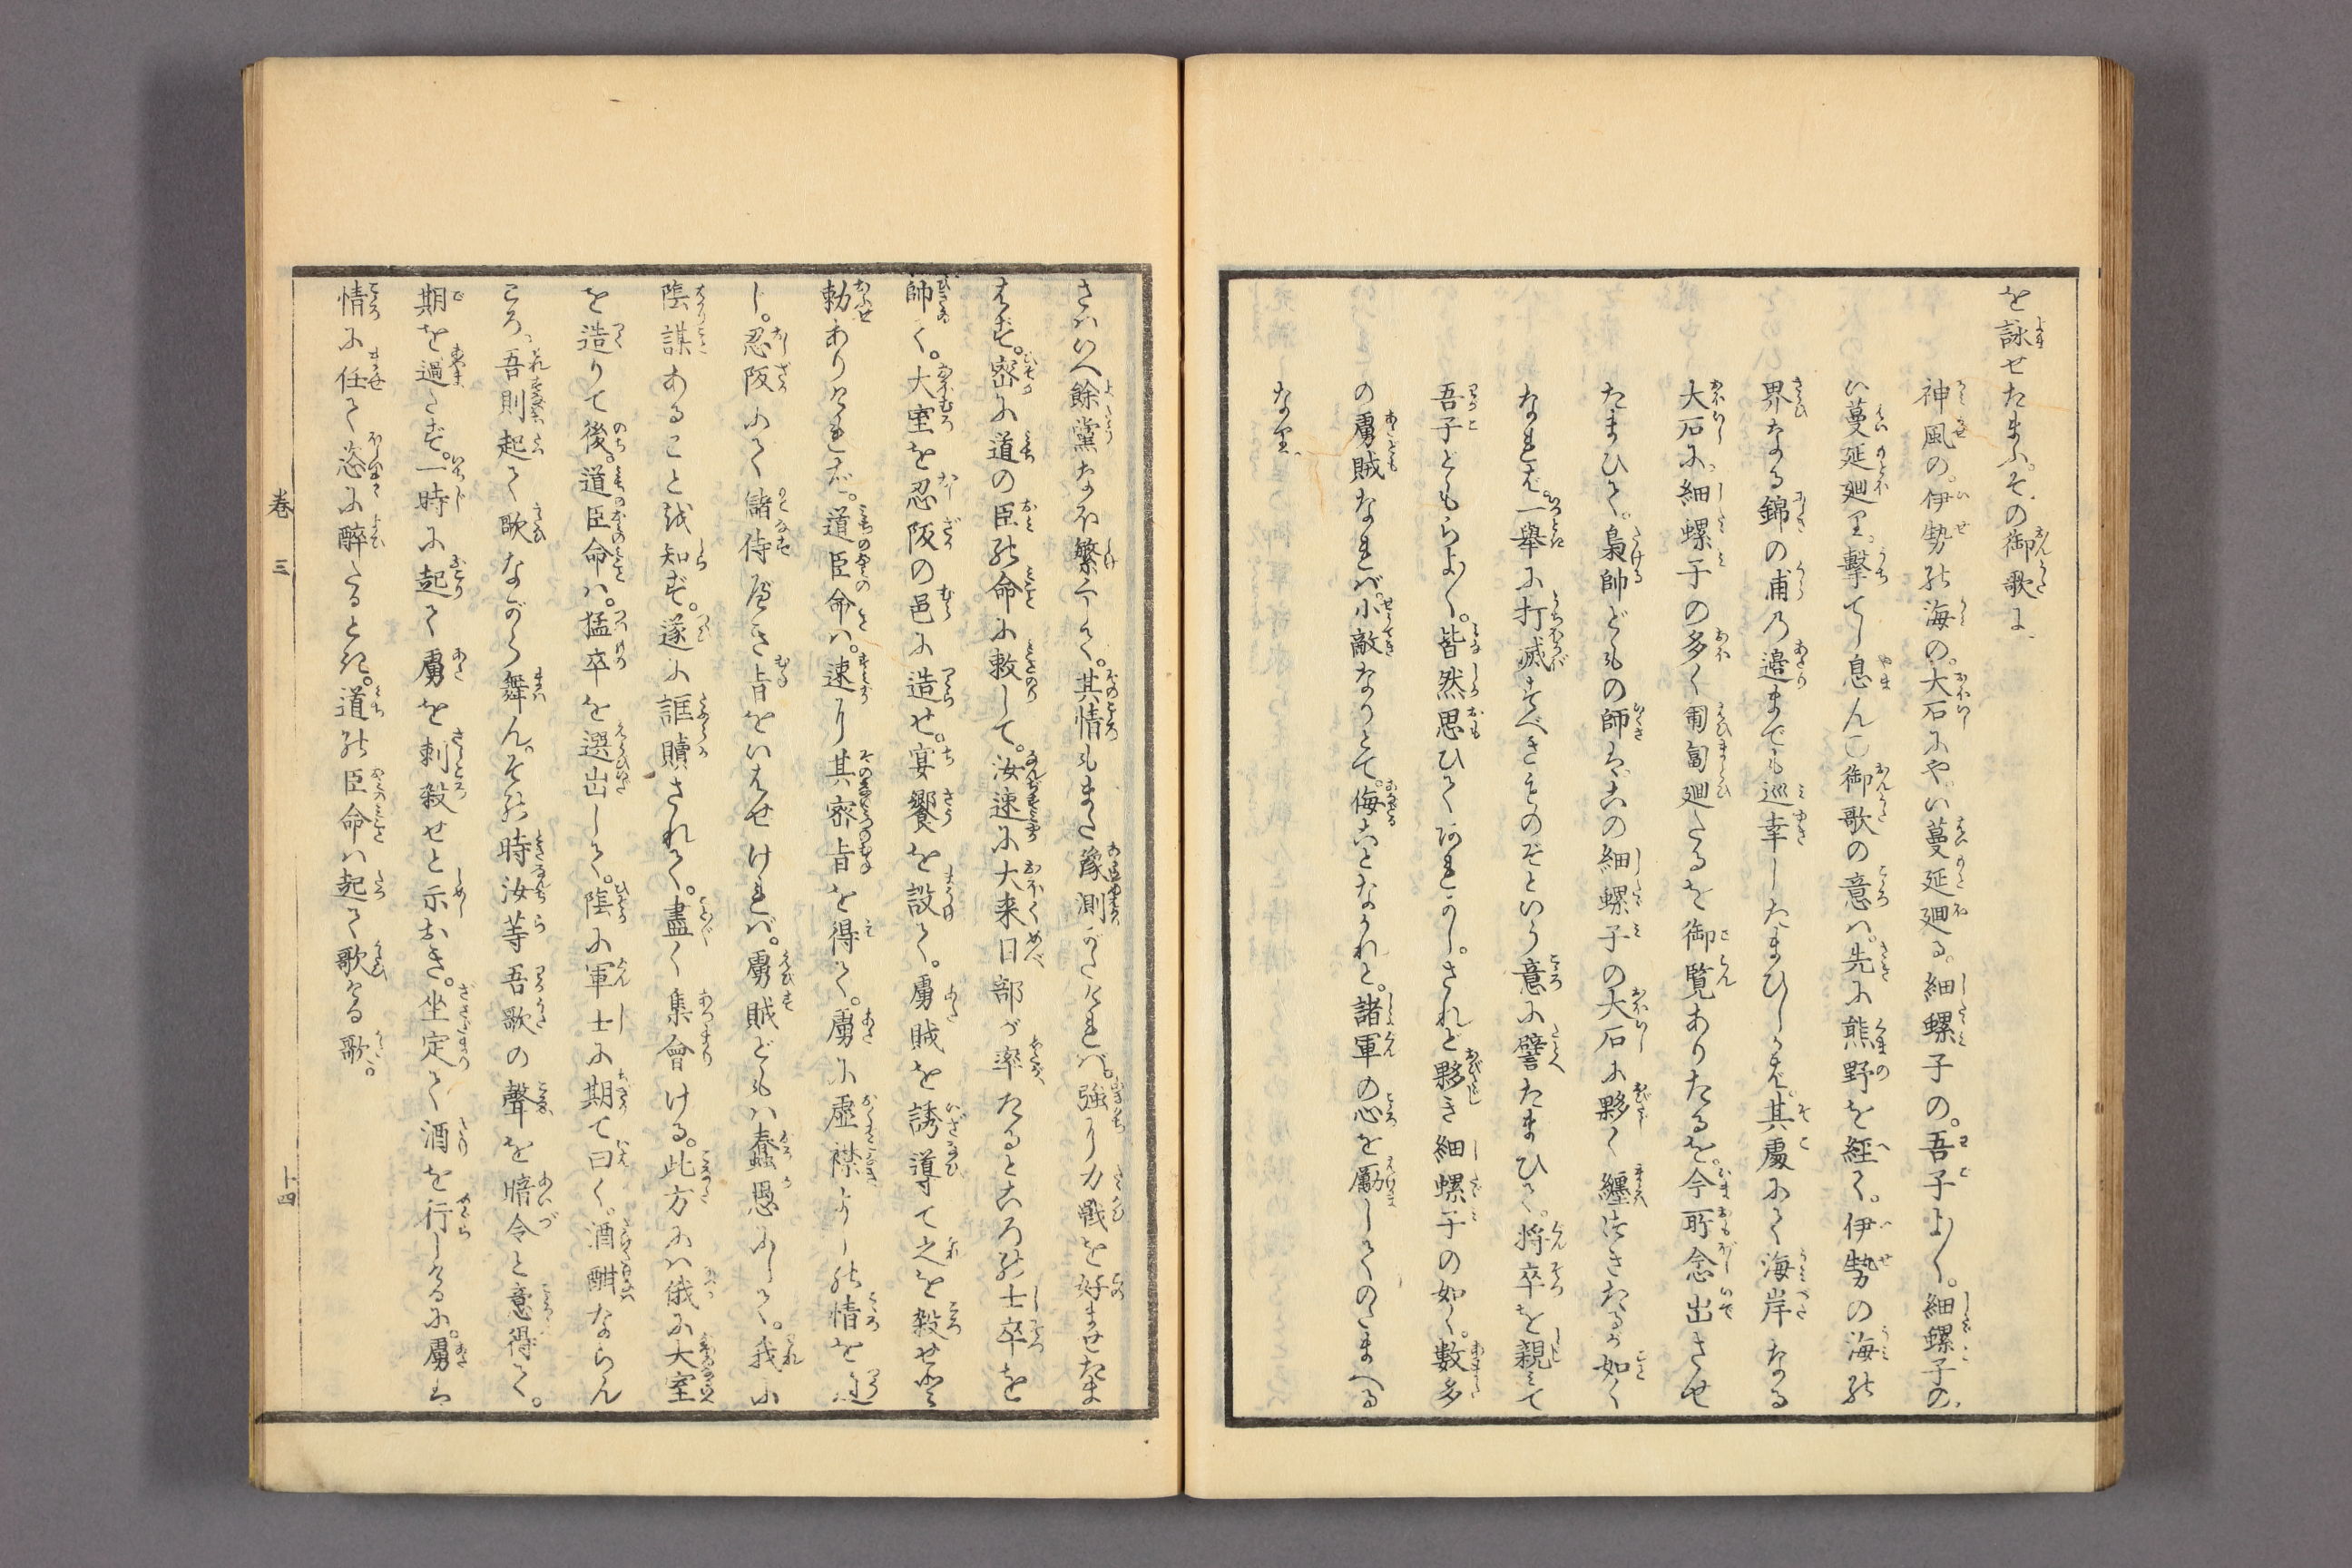 を詠せたまふ。その御歌に、
神風の。伊勢の海の。大石にやい蔓延廻る。細螺子の。吾子よ〳〵。細螺子の、
い蔓延廻り。撃てし息ん〇御歌の意ハ。先に熊野を経て。伊勢の海の
界なる錦の浦乃邉までも巡幸したまひしかば。其處にて海岸なる
大石に。細螺子の多く匍匐廻たるを御覧ありたるを。今所念出させ
たまひて。梟帥どもの師は。この細螺子の大石に夥く纏はきたるが如く
なれば。一擧に打滅すべきものぞといふ意に譬たまひて。将卒を親みて
吾子どもらよ〳〵。皆然思ひてあれかし。されど夥き細螺子の如く。數多
の虜賊なれバ。小敵なりとて。侮ことなかれと。諸軍の心を勵してのたまへる
なり。
さハいへ餘黨なほ繁くて。其情もまた豫測がたければ。強り力戦を好ませたま
はず。密に道の臣の命に敕して。汝速に大来目部が率たるところの士卒を
帥く。大室を忍阪の邑に造せ。宴饗を設て。虜賊を誘導て之を殺せと
勅ありければ。道臣命ハ。速り其密旨を得て。虜に虚襟よしの情を
じ。忍阪にて儲待べき旨をいはせけれバ。虜賊どもハ蠢愚にして。我に
隂謀あること越知ず。遂に誆賺されて。盡く集會ける。此方にハ俄に大室
を造りて後。道臣命ハ。猛卒を選出して。隂に軍士に期て曰く。酒酣ならん
ころ。吾則起て歌ながら舞ん。その時汝等吾歌の聲を暗令と意得て。
期を過たず。一時に起て虜を刺殺せと示おき。坐定て酒を行しけるに。虜ハ
情に任て恣に醉たるとき。道の臣命ハ起て歌ける歌。
巻三
十四